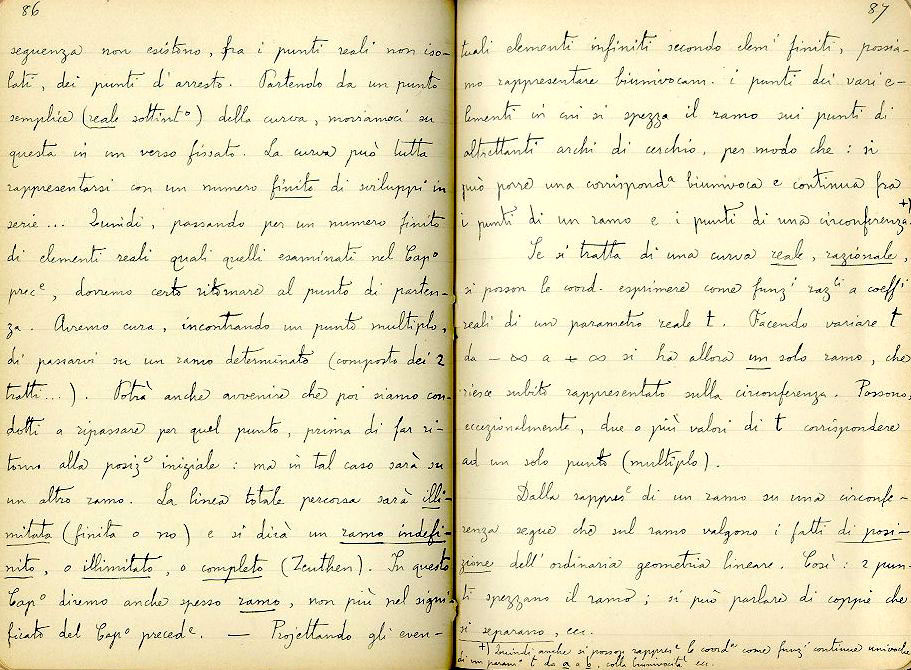 86
seguenza non esistono, fra i punti reali non iso-
lati, dei punti d'arresto. Partendo da un punto
semplice (reale sottint°) della curva, moviamoci su
questa in un verso fissato. La curva può tutta
rappresentarsi con un numero finito di sviluppi in
serie... Quindi, passando per un numero finito
di elementi reali quali quelli esaminati nel Cap°
prec^e, dovremo certo ritornare al punto di parten-
za. Avremo cura, incontrando un punto multiplo,
di passarvi su un ramo determinato (composto dei 2
tratti...). Potrà anche avvenire che poi siamo con-
dotti a ripassare per quel punto, prima di far ri-
torno alla posiz^e iniziale: ma in tal caso sarà su
un altro ramo. La linea totale percorsa sarà illi-
mitata (finita o no) e si dirà un ramo indefi-
nito, o illimitato, o completo (Zeuthen). In questo
Cap° diremo anche spesso ramo, non più nel signi-
ficato del Cap° preced^e. — Projettando gli even-
87
tuali elementi infiniti secondo elem^i finiti, possia-
mo rappresentare biunivocam. i punti dei vari e-
lementi in cui si spezza il ramo sui punti di
altrettanti archi di cerchio, per modo che: si
può porre una corrispond^a biunivoca e continua fra
i punti di un ramo e i punti di una circonferenza +)
Se si tratta di una curva reale, razionale,
si posson le coord. esprimere come funz^i raz^li a coeff^i
reali di un parametro reale t. Facendo variare t
da - ∞ a + ∞ si ha allora un solo ramo, che
riesce subito rappresentato sulla circonferenza. Possono,
eccezionalmente, due o più valori di t corrispondere
ad un solo punto (multiplo).
Dalla rappres^e di un ramo su una circonfe-
renza segue che sul ramo valgono i fatti di posi-
zione dell'ordinaria geometria lineare. Così: 2 pun-
ti spezzano il ramo; si può parlare di coppie che
si separano, ecc.
+) Quindi anche si posson rappres^e le coord^e come funz^i continue univoche
di un param° t da a a b, colla biunivocità ecc.